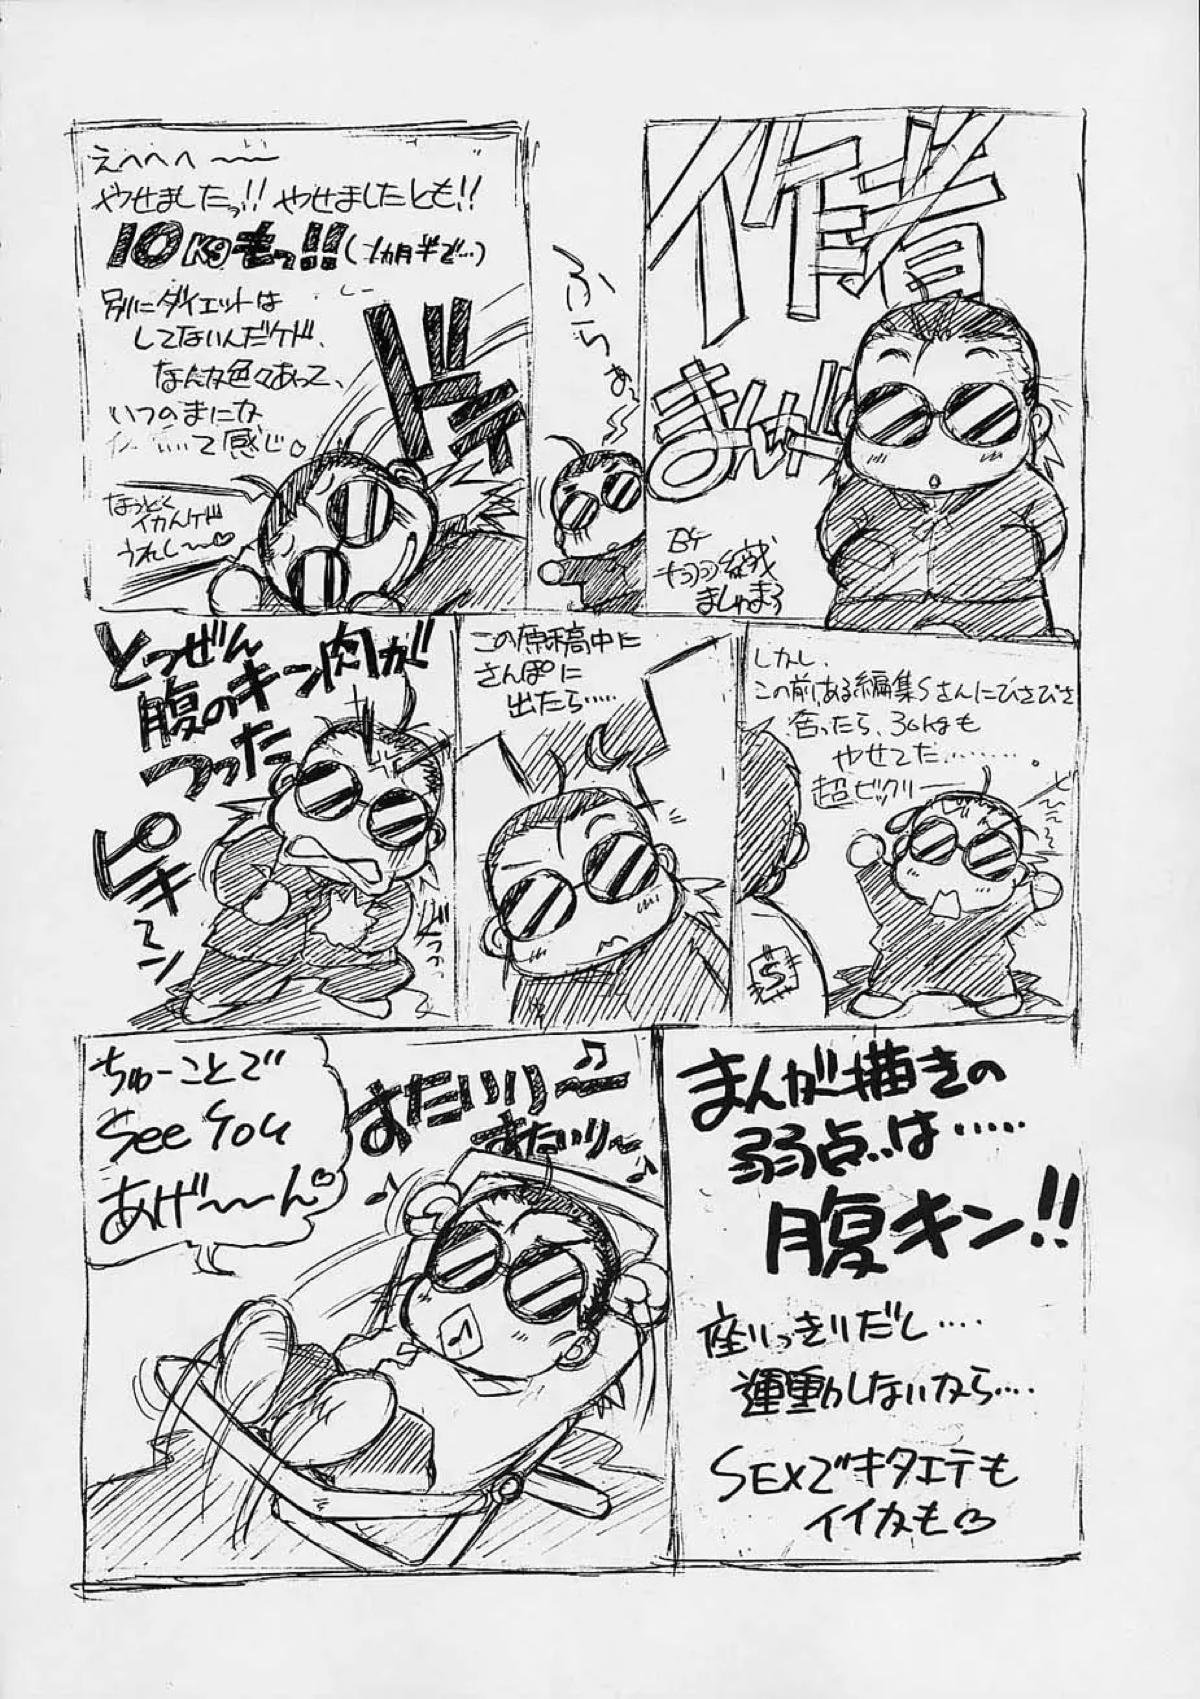 作者
まんが!!
BY
ましゅまろ
ふらぁ〜
えへへへ〜〜
やせましたっ!!やせましたとも!!
10kgもっ!!(1カ月半で…)
別にダイエットは
してないんだケド、
なんか色々あって、
いつのまにか
って感じ。
なっとく
イカんケド
うれし〜♡
ドキ
しかし、
この前、ある編集Sさんにひさびさ
会ったら、30kgも
やせてた………。
超ビックリ
S
この原稿中に
さんぽに
出たら……
とつぜん
腹のキン肉が
つった
ピキーン
まんが描きの
弱点は……
腹キン!!
座りっきりだし….
運動しないから….
SEXでキタエテも
イイかも
すたいりー
すたいり〜
♪
ちゅーことで
See You
あげ〜〜ん♡